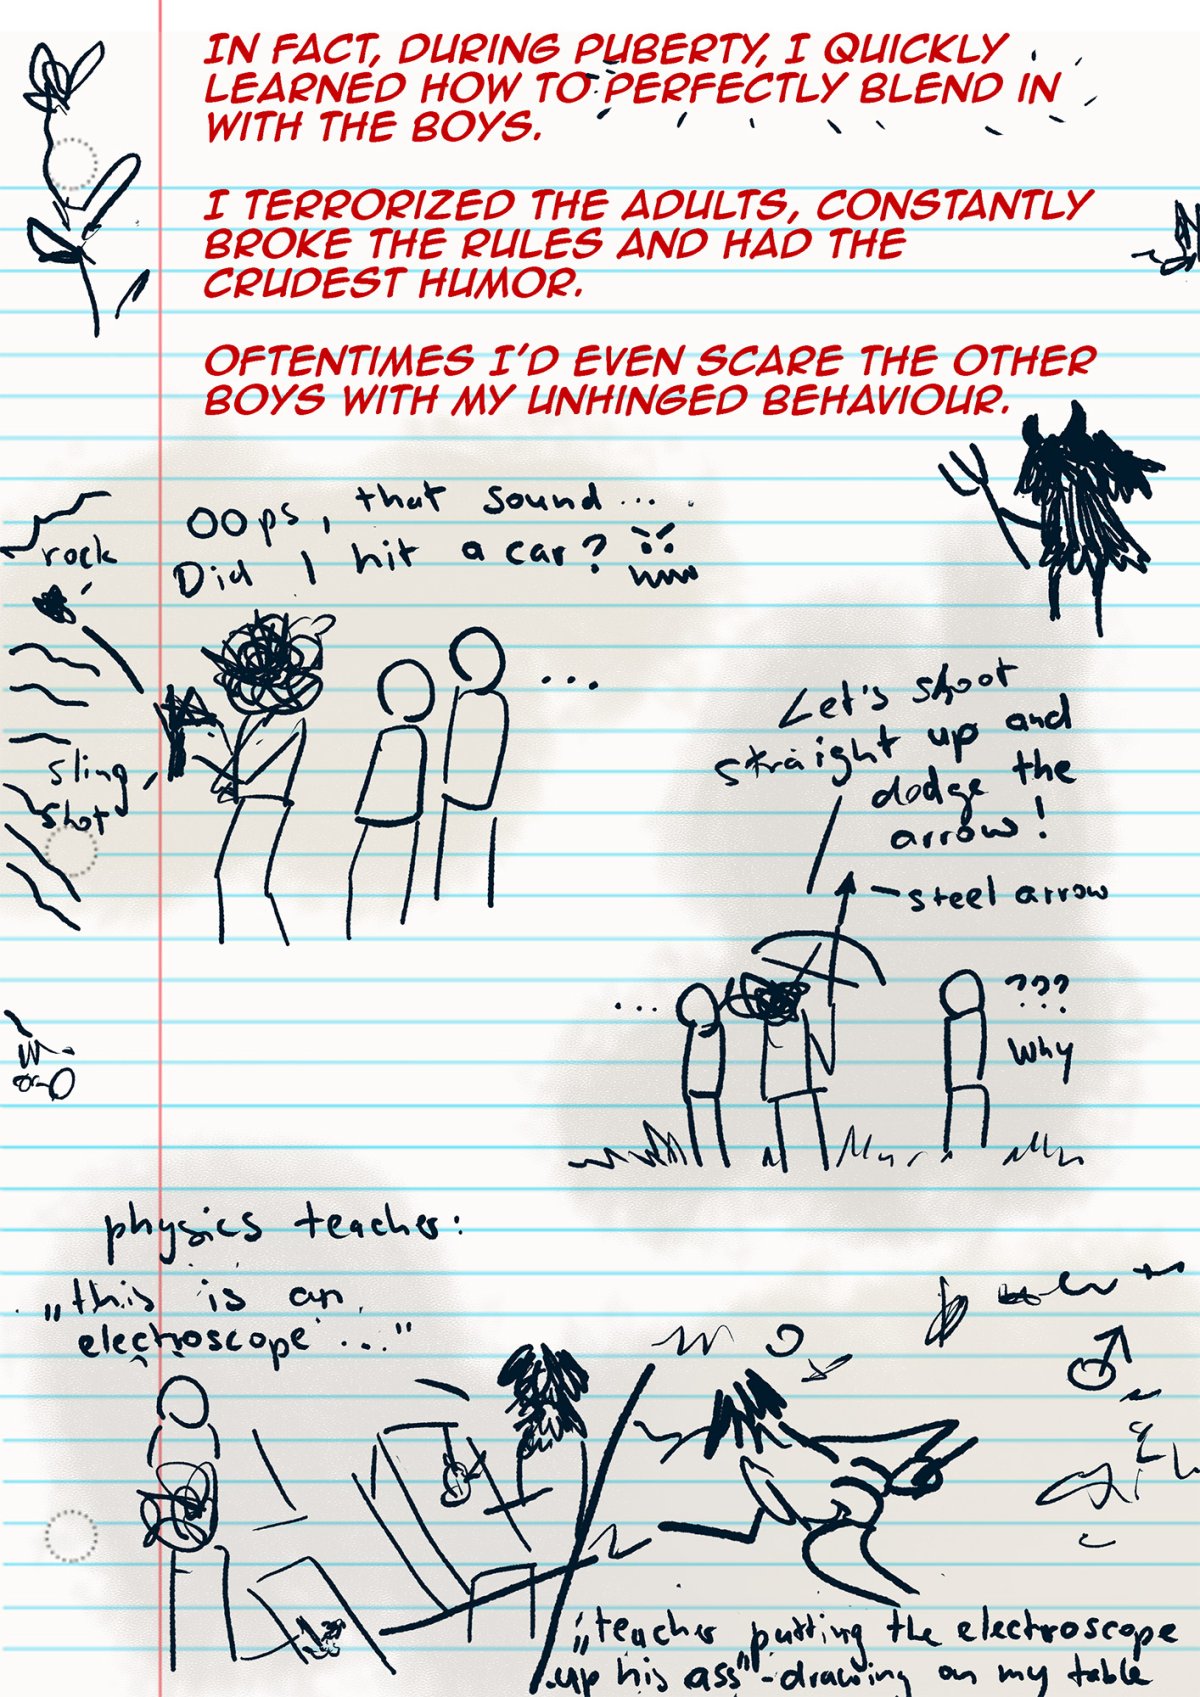 IN FACT, DURING PUBERTY, I QUICKLY
LEARNED HOW TO PERFECTLY BLEND IN
WITH THE BOYS.
I TERRORIZED THE ADULTS, CONSTANTLY
BROKE THE RULES AND HAD THE
CRUDEST HUMOR.
OFTENTIMES I'D EVEN SCARE THE OTHER
BOYS WITH MY UNHINGED BEHAVIOUR.
Oops, that sound...
Did I hit a car?
rock
sling
shot
...
Let's shoot
straight up and
dodge the
arrow!
steel arrow
...
???
Why
physics teacher:
„this is an
electroscope..."
„teacher putting the electroscope
up his ass" - drawing on my table